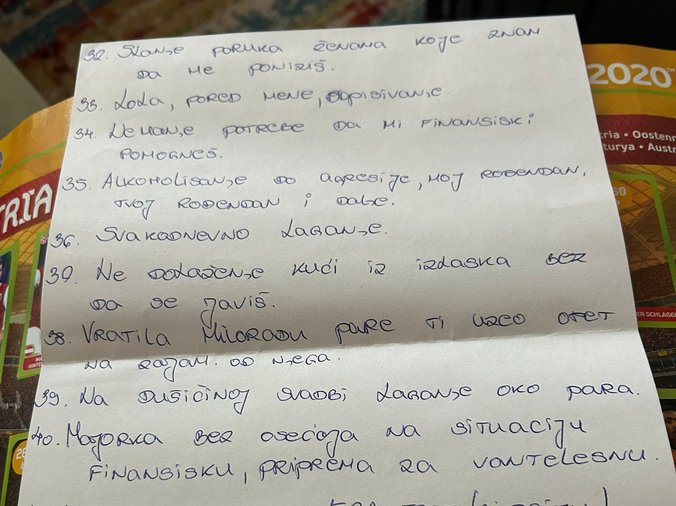 32. Slanje poruka ženama koje znam
da me poniziš.
33. Lola, pored mene, dopisivanje.
34. Nemanje potrebe da mi finansiski
pomogneš.
35. Alkoholisanje do agresije, moj rođendan,
tvoj rođendan i dalje.
36. Svakodnevno laganje.
37. Ne dolaženje kući iz izlaska bez
da se javiš.
38. Vratila Miloradu pare ti uzeo opet
na zajam od njega.
39. Na Dušičinoj svadbi laganje oko para.
40. Majorka bez osećaja na situaciju
finansisku, priprema za vantelesnu.
2020
TRIA
tria • Oostenr
turya • Austr
ER SCHLAGER